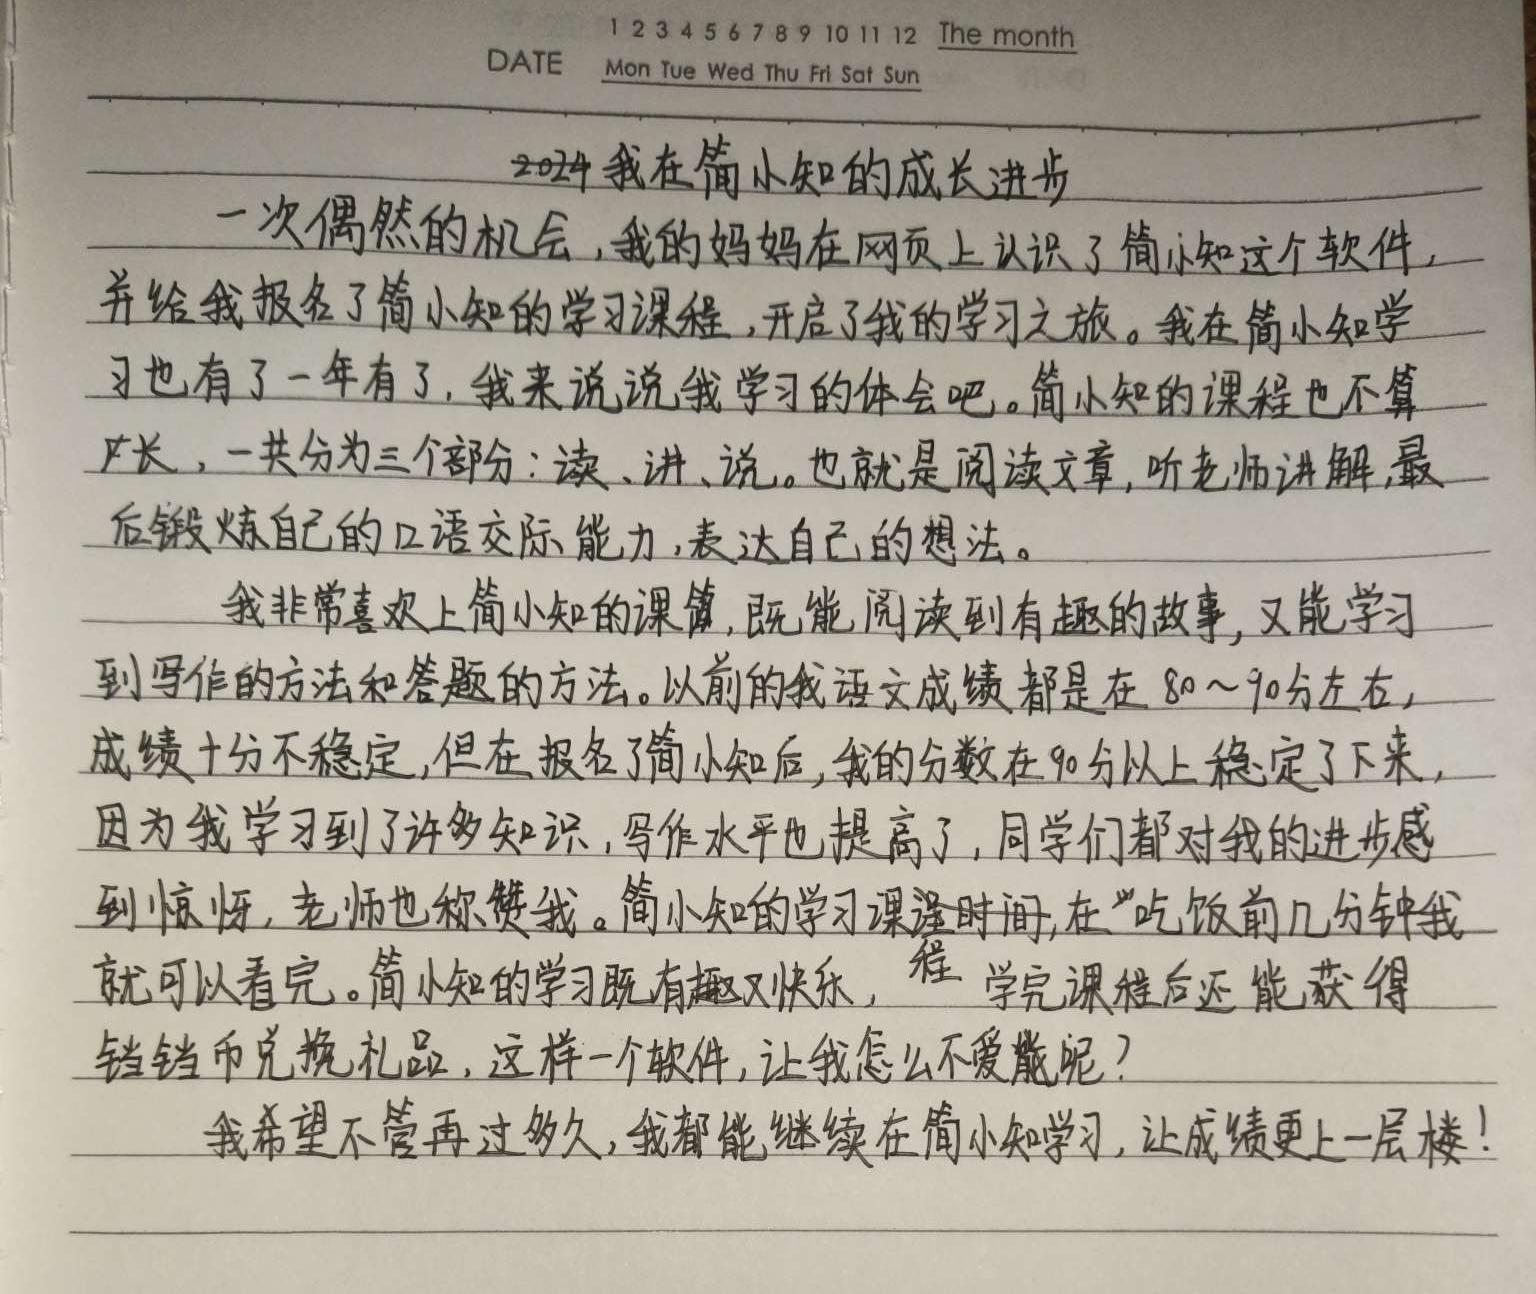 1 2 3 4 5 6 7 8 9 10 11 12 The month
DATE Mon Tue Wed Thu Fri Sat Sun
2024 我在简小知的成长进步
一次偶然的机会,我的妈妈在网页上认识了简小知这个软件,
并给我报名了简小知的学习课程,开启了我的学习之旅。我在简小知学
习也有了一年有了,我来说说我学习的体会吧。简小知的课程也不算
长,一共分为三个部分:读、讲、说。也就是阅读文章,听老师讲解,最
后锻炼自己的口语交际能力,表达自己的想法。
我非常喜欢上简小知的课,既能阅读到有趣的故事,又能学习
到写作的方法和答题的方法。以前的我语文成绩都是在80~90分左右,
成绩十分不稳定,但在报名了简小知后,我的分数在90分以上稳定了下来,
因为我学习到了许多知识,写作水平也提高了,同学们都对我的进步感
到惊讶,老师也称赞我。简小知的学习课程时间,在吃饭前几分钟我
就可以看完。简小知的学习既有趣又快乐, 程 学完课程后还能获得
铛铛币兑换礼品,这样一个软件,让我怎么不爱呢?
我希望不管再过多久,我都能继续在简小知学习,让成绩更上一层楼!